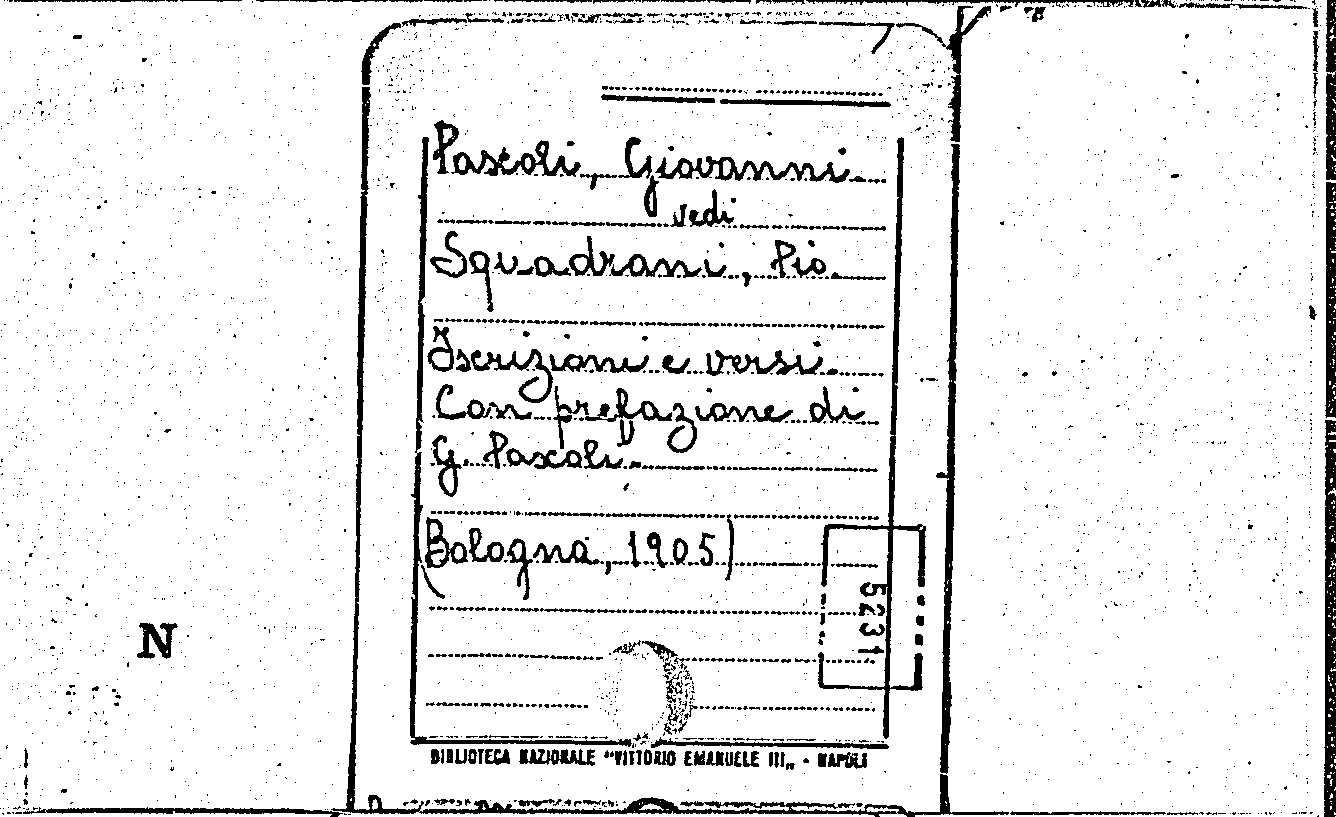 Pascoli, Giovanni.
vedi
Squadrani, Pio.
Iscrizioni e versi.
Con prefazione di
G. Pascoli.
(Bologna, 1905)
5231
N
BIBLIOTECA NAZIONALE "VITTORIO EMANUELE III„ - NAPOLI